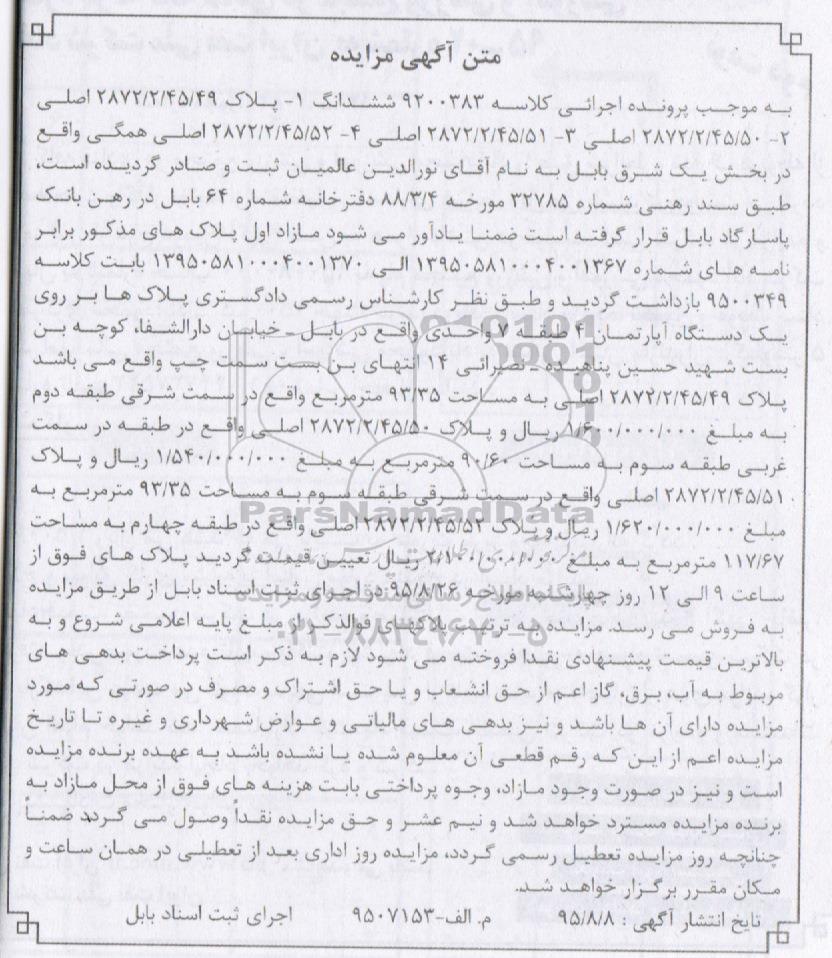 متن آگهی مزایده
به موجب پرونده اجرائی کلاسه ۹۲۰۰۳۸۳ ششدانگ ۱- پلاک ۲۸۷۲/۲/۴۵/۴۹ اصلی
۲- ۲۸۷۲/۲/۴۵/۵۰ اصلی ۳- ۲۸۷۲/۲/۴۵/۵۱ اصلی ۴- ۲۸۷۲/۲/۴۵/۵۲ اصلی همگی واقع
در بخش یک شرق بابل به نام آقای نورالدین عالمیان ثبت و صادر گردیده است،
طبق سند رهنی شماره ۳۲۷۸۵ مورخه ۸۸/۳/۴ دفترخانه شماره ۶۴ بابل در رهن بانک
پاسارگاد بابل قرار گرفته است ضمنا یادآور می شود مازاد اول پلاک های مذکور برابر
نامه های شماره ۱۳۹۵۰۵۸۱۰۰۰۴۰۰۱۳۶۷ الی ۱۳۹۵۰۵۸۱۰۰۰۴۰۰۱۳۷۰ بابت کلاسه
۹۵۰۰۳۴۹ بازداشت گردید و طبق نظر کارشناس رسمی دادگستری پلاک ها بر روی
یک دستگاه آپارتمان ۴ طبقه ۷ واحدی واقع در بابل ـ خیابان دارالشفا، کوچه بن
بست شهید حسین پناهنده ـ نصیرائی ۱۴ انتهای بن بست سمت چپ واقع می باشد
پلاک ۲۸۷۲/۲/۴۵/۴۹ اصلی به مساحت ۹۳/۳۵ مترمربع واقع در سمت شرقی طبقه دوم
به مبلغ ۱/۶۰۰/۰۰۰/۰۰۰ ریال و پلاک ۲۸۷۲/۲/۴۵/۵۰ اصلی واقع در طبقه در سمت
غربی طبقه سوم به مساحت ۹۰/۶۰ مترمربع به مبلغ ۱/۵۴۰/۰۰۰/۰۰۰ ریال و پلاک
۲۸۷۲/۲/۴۵/۵۱ اصلی واقع در سمت شرقی طبقه سوم به مساحت ۹۳/۳۵ مترمربع به
مبلغ ۱/۶۲۰/۰۰۰/۰۰۰ ریال و پلاک ۲۸۷۲/۲/۴۵/۵۲ اصلی واقع در طبقه چهارم به مساحت
۱۱۷/۶۷ مترمربع به مبلغ ۲/۱۰۰/۰۰۰/۰۰۰ ریال تعیین قیمت گردید پلاک های فوق از
ساعت ۹ الی ۱۲ روز چهارشنبه مورخه ۹۵/۸/۲۶ در اجرای ثبت اسناد بابل از طریق مزایده
به فروش می رسد. مزایده به ترتیب پلاکهای فوالذکر از مبلغ پایه اعلامی شروع و به
بالاترین قیمت پیشنهادی نقدا فروخته می شود لازم به ذکر است پرداخت بدهی های
مربوط به آب، برق، گاز اعم از حق انشعاب و یا حق اشتراک و مصرف در صورتی که مورد
مزایده دارای آن ها باشد و نیز بدهی های مالیاتی و عوارض شهرداری و غیره تا تاریخ
مزایده اعم از این که رقم قطعی آن معلوم شده یا نشده باشد به عهده برنده مزایده
است و نیز در صورت وجود مازاد، وجوه پرداختی بابت هزینه های فوق از محل مازاد به
برنده مزایده مسترد خواهد شد و نیم عشر و حق مزایده نقداً وصول می گردد ضمناً
چنانچه روز مزایده تعطیل رسمی گردد، مزایده روز اداری بعد از تعطیلی در همان ساعت و
مکان مقرر برگزار خواهد شد.
تایخ انتشار آگهی : ۹۵/۸/۸ م. الف-۹۵۰۷۱۵۳ اجرای ثبت اسناد بابل
ParsNamadData
۰۲۱-۸۸۳۴۹۶۷۰-۵